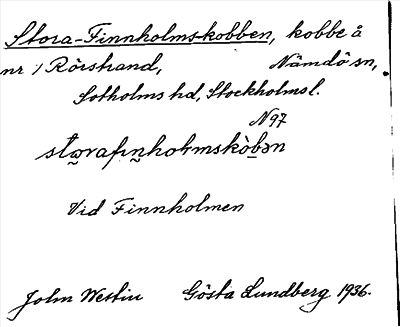 Stora-Finnholms-kobben, kobbe å
nr 1 Rörstrand, Nämdö sn,
Sotholms hd, Stockholms l.
N97
Vid Finnholmen
John Westin Gösta Lundberg 1936.